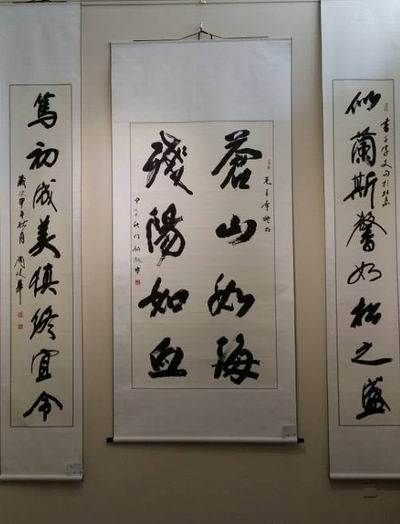 似蘭斯馨如松之盛
書千字文句於北京
蒼山如海
殘陽如血
篤初誠美慎終宜令
歲次甲午秋月